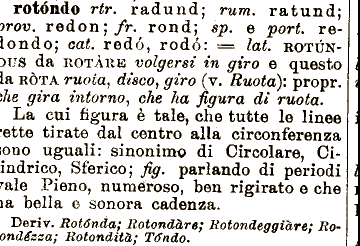 rotóndo rtr. radund; rum. ratund;
prov. redon; fr. rond; sp. e port. re-
dondo; cat. redó, rodó: = lat. ROTÚN-
DUS da ROTÀRE volgersi in giro e questo
da RÒTA ruota, disco, giro (v. Ruota): propr.
che gira intorno, che ha figura di ruota.
La cui figura è tale, che tutte le linee
rette tirate dal centro alla circonferenza
sono uguali: sinonimo di Circolare, Ci-
lindrico, Sferico; fig. parlando di periodi
vale Pieno, numeroso, ben rigirato e che
ha bella e sonora cadenza.
Deriv. Rotónda; Rotondàre; Rotondeggiàre; Ro-
tondézza; Rotondità; Tóndo.